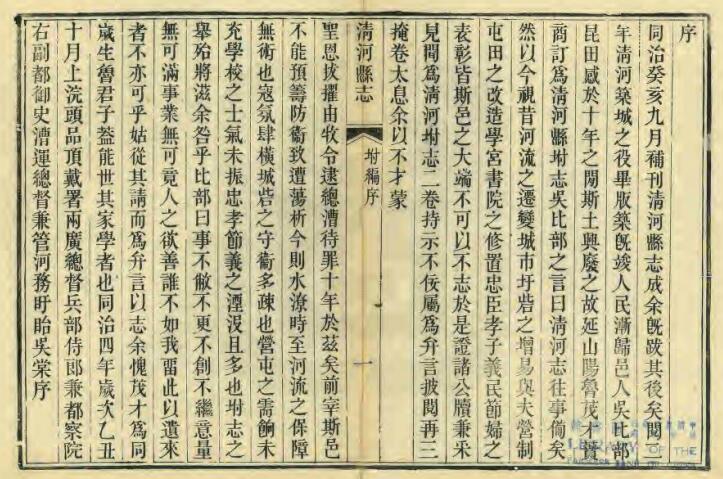 序
同治癸亥九月補刊清河縣志成余旣跋其後矣閱二
年清河築城之役畢版築旣竣人民漸歸邑人吳比部
昆田感於十年之閒斯土興廢之故延山陽魯茂才蕡
商訂爲清河縣坿志吳比部之言曰清河志往事備矣
然以今視昔河流之遷變城市圩砦之增易與夫營制
屯田之改造學宮書院之修置忠臣孝子義民節婦之
表彰皆斯邑之大端不可以不志於是證諸公牘兼采
見聞爲清河坿志二卷持示不佞屬爲弁言披閱再三
掩卷太息余以不才蒙
清河縣志
坿編序
一
聖恩拔擢由牧令逮總漕待罪十年於茲矣前宰斯邑
不能預籌防衞致遭蕩析今則水潦時至河流之保障
無術也寇氛肆橫城砦之守衞多疎也營屯之需餉未
充學校之士氣未振忠孝節義之湮沒且多也坿志之
舉殆將滋余咎乎比部曰事不敝不更不創不繼意量
無可滿事業無可竟人之欲善誰不如我畱此以遺來
者不亦可乎姑從其請而爲弁言以志余愧茂才爲同
歲生魯君子葢能世其家學者也同治四年歲次乙丑
十月上浣頭品頂戴署兩廣總督兵部侍郎兼都察院
右副都御史漕運總督兼管河務盱眙吳棠序
LIBRARY OF THE